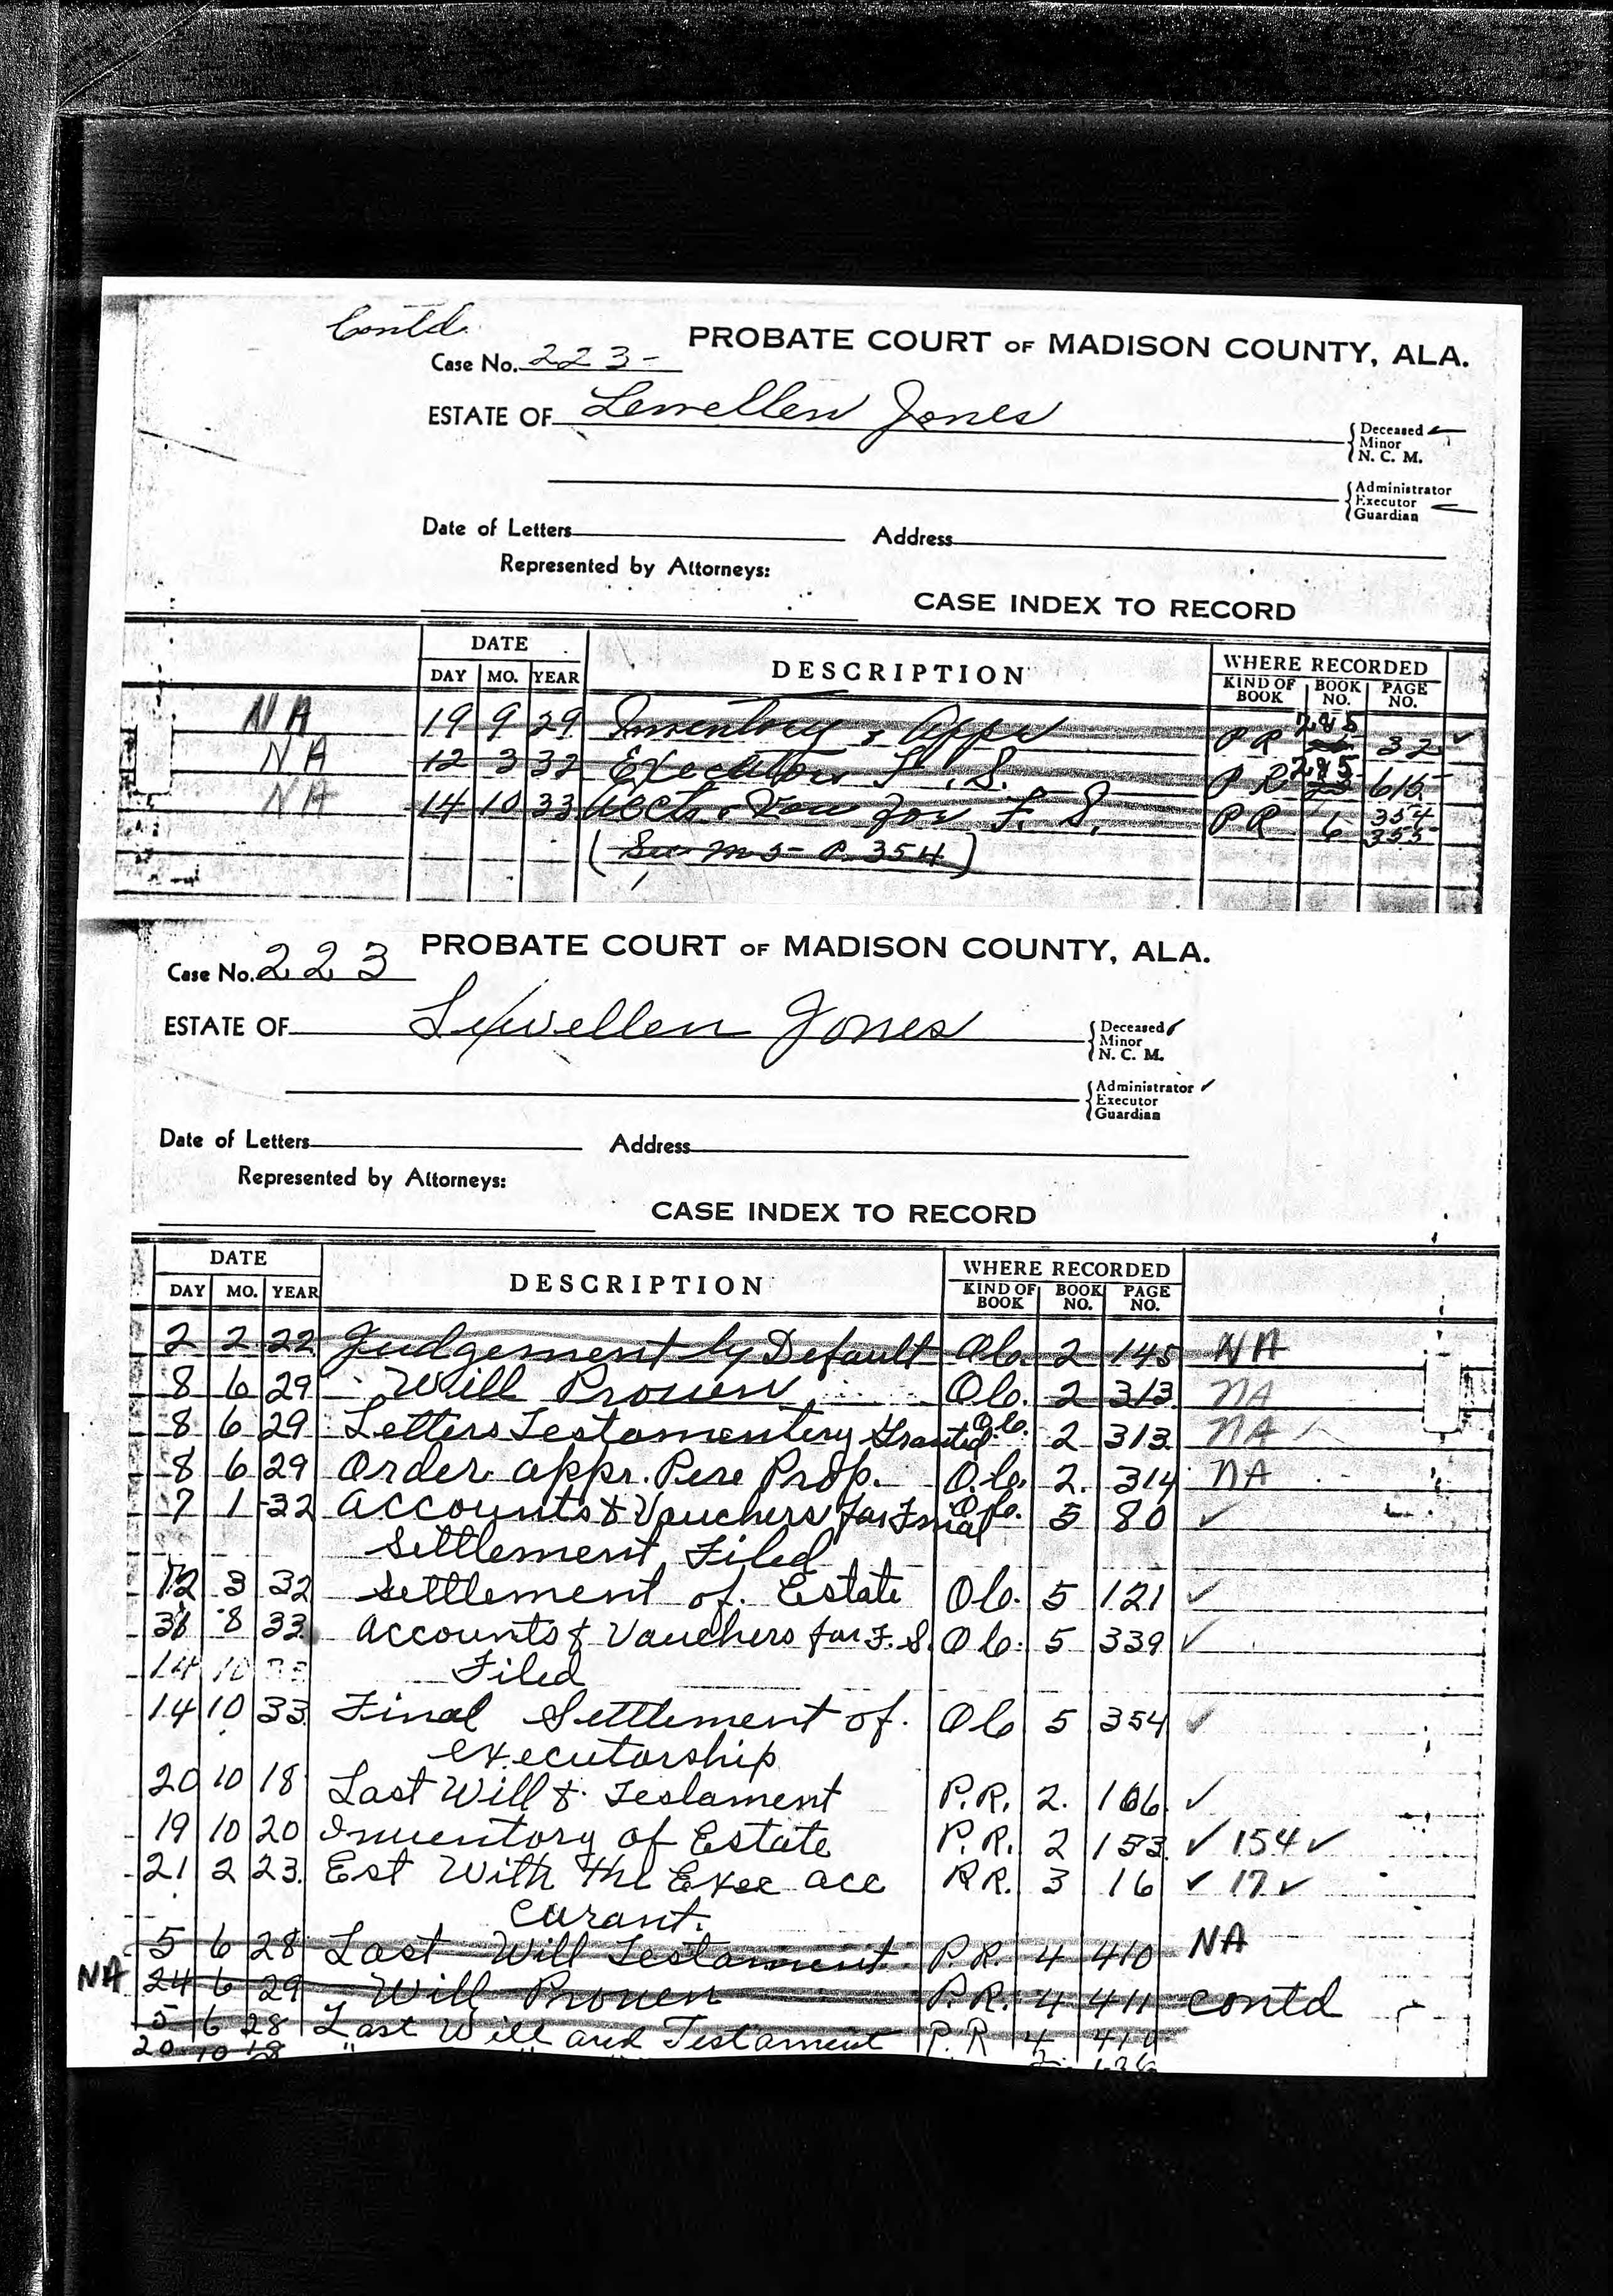 Contd.
PROBATE COURT OF MADISON COUNTY, ALA.
Case No. 223-
ESTATE OF Lewellen Jones
Deceased
Minor
N. C. M.
Administrator
Executor
Guardian
Date of Letters Address
Represented by Attorneys:
CASE INDEX TO RECORD
DATE DESCRIPTION WHERE RECORDED
DAY MO. YEAR KIND OF BOOK BOOK NO. PAGE NO.
NA 19 9 29 Inventory & Appr PR 285 32 ✓
NA 12 3 32 Executors F. S. PR 285 616
NA 14 10 33 Accts & Vou for F. S. PR 6 354 355
(See M 5- P. 354)
PROBATE COURT OF MADISON COUNTY, ALA.
Case No. 223
ESTATE OF Lewellen Jones
Deceased ✓
Minor
N. C. M.
Administrator ✓
Executor
Guardian
Date of Letters Address
Represented by Attorneys:
CASE INDEX TO RECORD
DATE DESCRIPTION WHERE RECORDED
DAY MO. YEAR KIND OF BOOK BOOK NO. PAGE NO.
2 2 22 Judgement by Default O.C. 2 145 NA
8 6 29 Will Proven O.C. 2 313 NA
8 6 29 Letters Testamentery Granted O.C. 2 313 NA
8 6 29 Order appr. Pere Prop. O.C. 2. 314 NA
7 1 32 Accounts & Vouchers for Final O.C. 5 80 ✓
Settlement Filed
12 3 32 Settlement of Estate O.C. 5 121 ✓
31 8 33 Accounts & Vouchers for F. S. O.C. 5 339 ✓
14 10 Filed
14 10 33 Final Settlement of O.C 5 354 ✓
executorship
20 10 18 Last Will & Testament P.R. 2. 166 ✓
19 10 20 Inventory of Estate P.R. 2 153 ✓ 154 ✓
21 2 23 Est With the Exec acc P.R. 3 16 ✓ 17 ✓
curant.
5 6 28 Last Will Testament P.R. 4 410 NA
NA 24 6 29 Will Proven P.R. 4 411 contd
5 6 28 Last Will and Testament P.R 4 410
20 10 18 " "